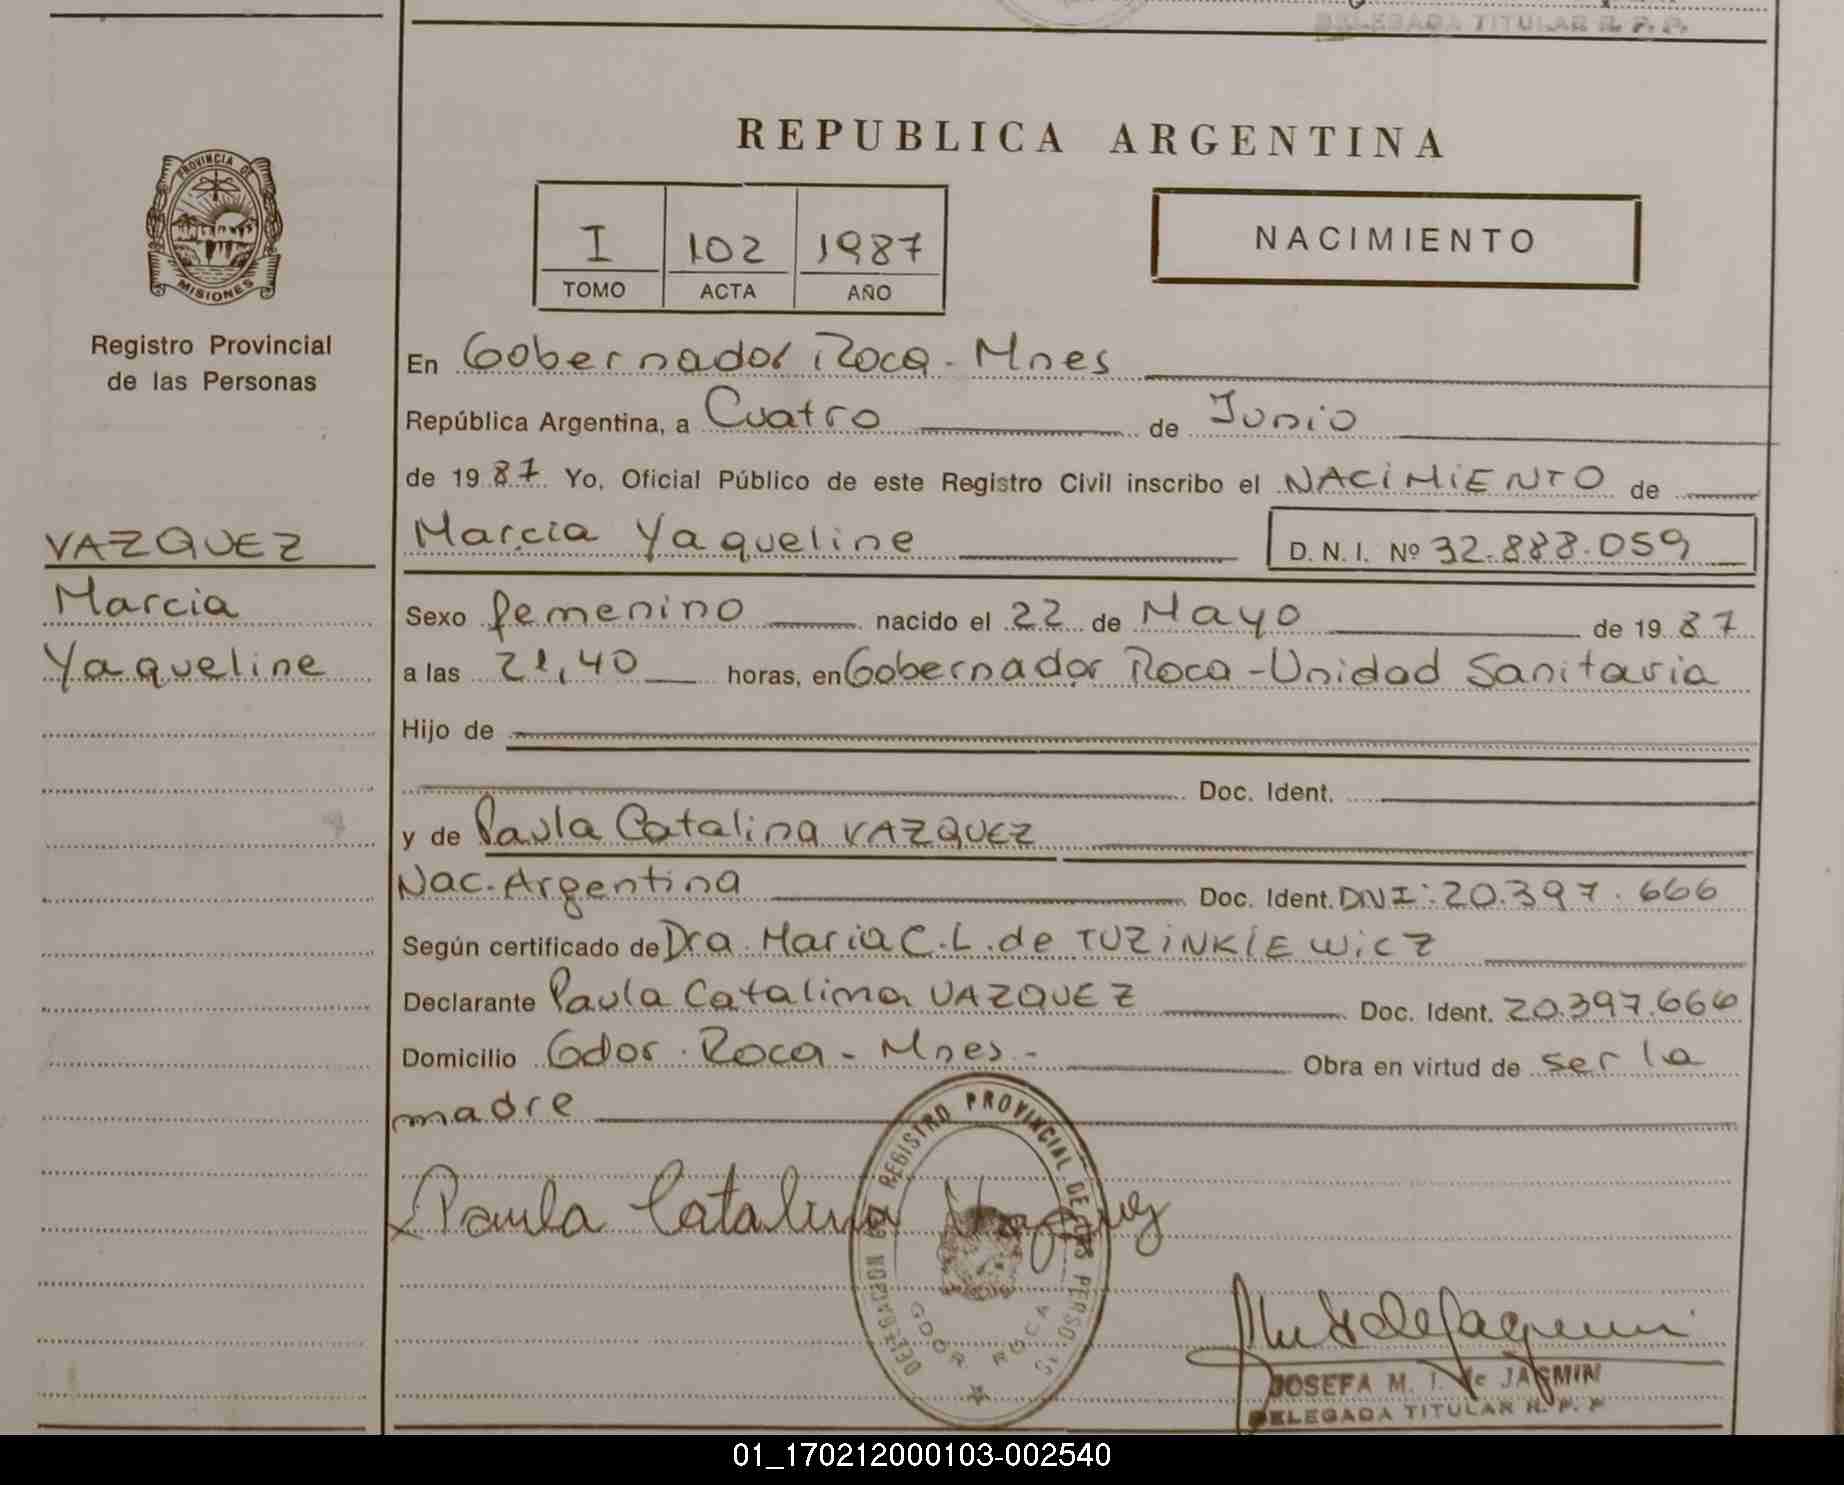 DELEGADA TITULAR R. P. P.
REPUBLICA ARGENTINA
PROVINCIA DE
MISIONES
Registro Provincial
de las Personas
I 102 1987
TOMO ACTA AÑO
NACIMIENTO
En Gobernador Roca - Mnes
República Argentina, a Cuatro de Junio
de 1987 Yo, Oficial Público de este Registro Civil inscribo el NACIMIENTO de
VAZQUEZ
Marcia Yaqueline D. N. I. Nº 32.888.059
Marcia
Yaqueline
Sexo femenino nacido el 22 de Mayo de 1987
a las 21,40 horas, en Gobernador Roca - Unidad Sanitaria
Hijo de
Doc. Ident.
y de Paula Catalina VAZQUEZ
Nac. Argentina Doc. Ident. DNI: 20.397.666
Según certificado de Dra. Maria C. L. de TUZINKIEWICZ
Declarante Paula Catalina VAZQUEZ Doc. Ident. 20.397.666
Domicilio Gdor. Roca - Mnes - Obra en virtud de ser la
madre
Paula Catalina Vazquez
DELEGACION REGISTRO PROVINCIAL DE LAS PERSONAS
GDOR ROCA
JOSEFA M. I. de JASMIN
DELEGADA TITULAR R. P. P
01_170212000103-002540